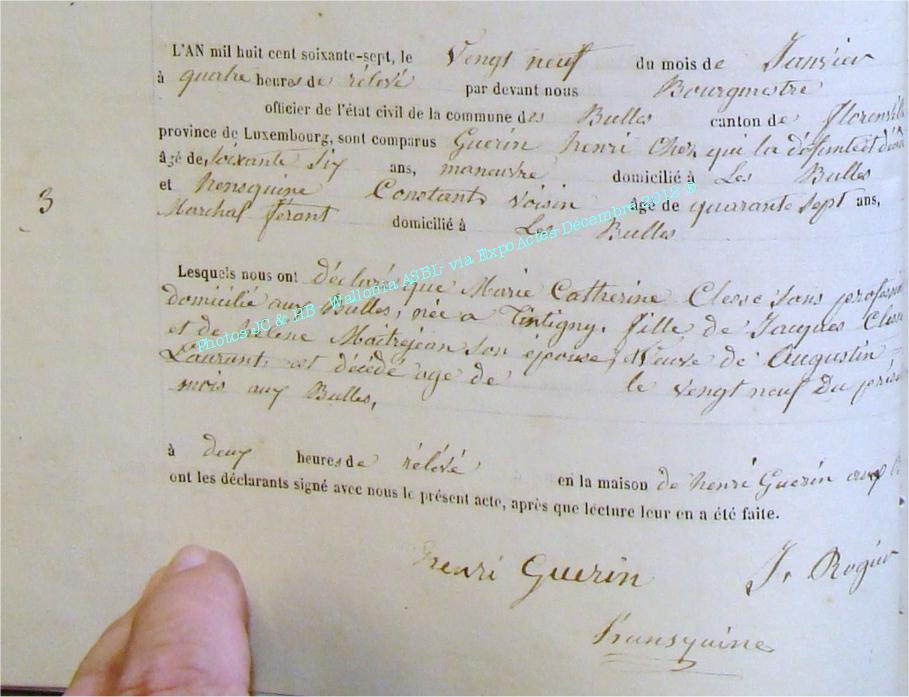 L'AN mil huit cent soixante-sept, le Vengt neuf du mois de Janvier
à quatre heures de rélevé par devant nous Bourgmestre
officier de l'état civil de la commune des Bulles canton de florenville
province de Luxembourg, sont comparus Guerin henri Chez qui la défunte est
âgé de, soixante six ans, maneuvre domicilié à Les Bulles
3
et hensquine Constant Voisin âgé de quarante sept ans,
Marchal férant domicilié à Les Bulles
Lesquels nous ont déclaré que Marie Catherine Clesse sans
domicilié aux Bulles, née a Tintigny, fille de Jacques
et de hélene Maitrejean son épouse, Veuve de Augustin
Laurant, est décédé age de le vengt neuf Du
mois aux Bulles,
à deux heures de rélevé en la maison de henri Guerin aux
ont les déclarants signé avec nous le présent acte, après que lecture leur en a été faite.
henri Guerin J. Rogier
hansquine
Photos JC & HB - Wallonia ASBL via ExpoActes Décembre 2012 ®